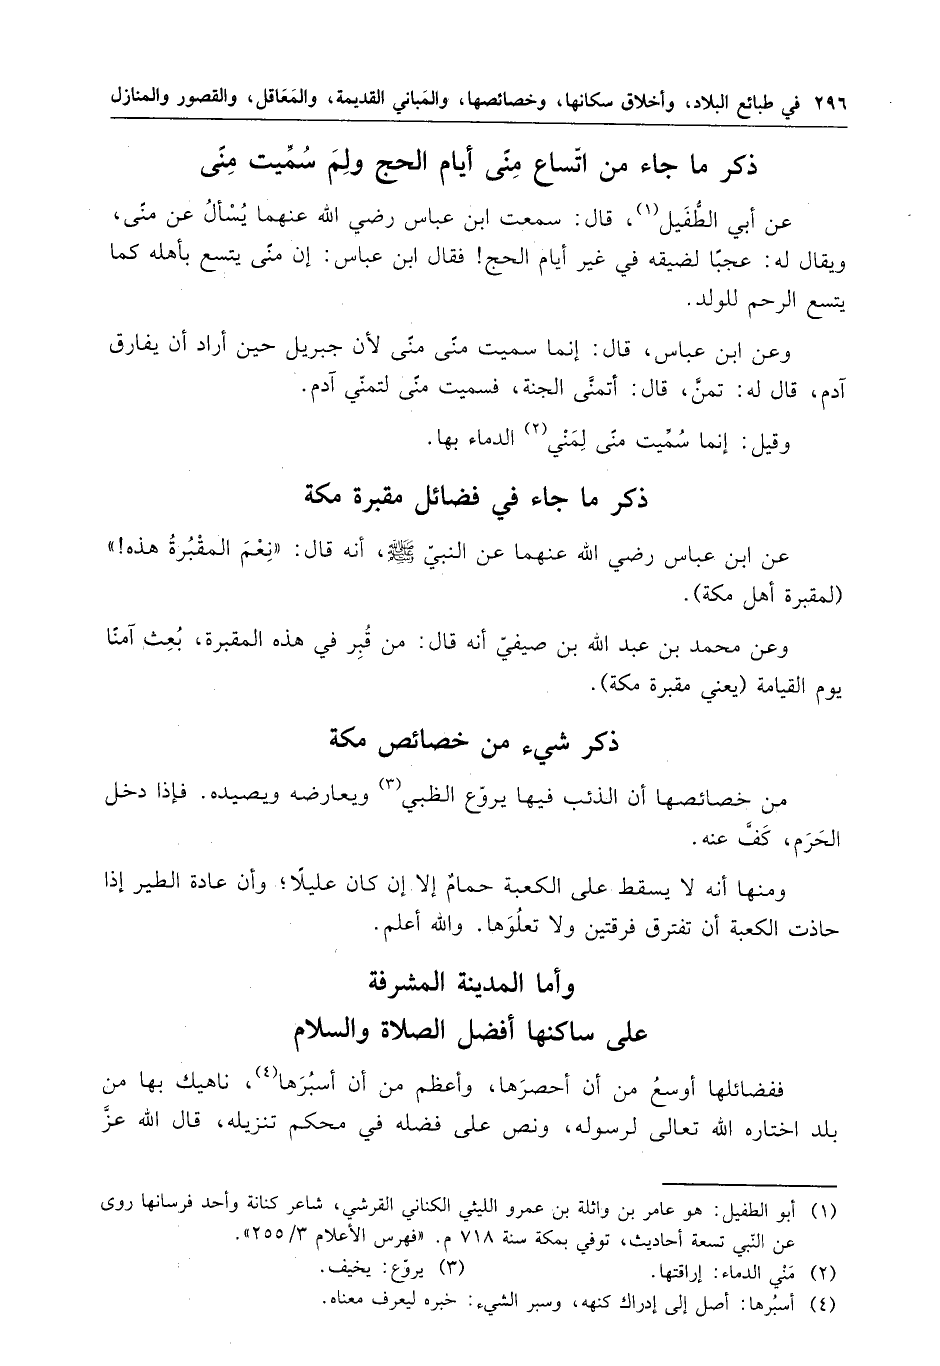 ٢٩٦ في طبائع البلاد، وأخلاق سكانها، وخصائصها، والمَباني القديمة، والمَعَاقل، والقصور والمنازل
ذكر ما جاء من اتّساع مِنّى أيام الحج ولِمَ سُمِّيت مِنّى
عن أبي الطُّفَيل(١)، قال: سمعت ابن عباس رضي الله عنهما يُسْألُ عن منّى،
ويقال له: عجبًا لضيقه في غير أيام الحج! فقال ابن عباس: إن منّى يتسع بأهله كما
يتسع الرحم للولد.
وعن ابن عباس، قال: إنما سميت منّى منّى لأن جبريل حين أراد أن يفارق
آدم، قال له: تمنَّ، قال: أتمنَّى الجنة، فسميت منّى لتمنّي آدم.
وقيل: إنما سُمِّيت منّى لِمَنْي(٢) الدماء بها.
ذكر ما جاء في فضائل مقبرة مكة
عن ابن عباس رضي الله عنهما عن النبيّ ﷺ، أنه قال: «نِعْمَ المقْبُرةُ هذه!»
(لمقبرة أهل مكة).
وعن محمد بن عبد الله بن صيفيّ أنه قال: من قُبِر في هذه المقبرة، بُعِث آمنًا
يوم القيامة (يعني مقبرة مكة).
ذكر شيء من خصائص مكة
من خصائصها أن الذئب فيها يروّع الظبي(٣) ويعارضه ويصيده. فإذا دخل
الحَرَم، كَفَّ عنه.
ومنها أنه لا يسقط على الكعبة حمامٌ إلا إن كان عليلًا؛ وأن عادة الطير إذا
حاذت الكعبة أن تفترق فرقتين ولا تعلُوَها. والله أعلم.
وأما المدينة المشرفة
على ساكنها أفضل الصلاة والسلام
ففضائلها أوسعُ من أن أحصرَها، وأعظم من أن أسبُرَها(٤)، ناهيك بها من
بلد اختاره الله تعالى لرسوله، ونص على فضله في محكم تنزيله، قال الله عزَّ
(١) أبو الطفيل: هو عامر بن واثلة بن عمرو الليثي الكناني القرشي، شاعر كنانة وأحد فرسانها روى
عن النّبي تسعة أحاديث، توفي بمكة سنة ٧١٨ م. «فهرس الأعلام ٣/ ٢٥٥».
(٢) مَنْي الدماء: إراقتها. (٣) يروّع: يخيف.
(٤) أسبُرها: أصل إلى إدراك كنهه، وسبر الشيء: خبره ليعرف معناه.